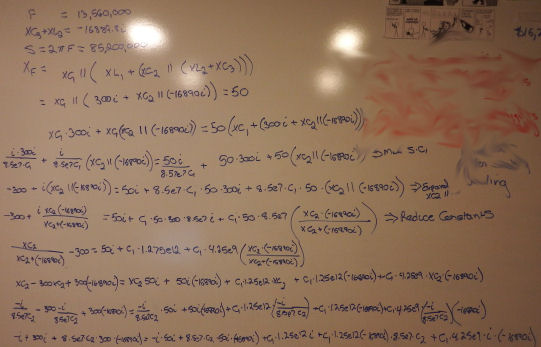 F = 13,560,000
XC3+XL2 = -16889.8i
S = 2πF = 85,200,000
XF = XC1 || ( XL1 + (XC2 || (XL2+XC3)))
= XC1 || ( 300i + XC2 || (-16890i)) = 50
XC1·300i + XC1(XC2 || (-16890i)) = 50(XC1 + (300i + XC2 || (-16890i)))
i·300i/8.5e7·C1 + i/8.5e7C1 (XC2 || (-16890i)) = 50i/8.57e7C1 + 50·300i + 50(XC2 || (-16890i)) ⇒ Mul S.C1
-300 + i(XC2 || (-16890i)) = 50i + 8.5e7·C1·50·300i + 8.5e7·C1·50·(XC2 || (-16890i)) ⇒ Expand XC2 || ...
-300 + i XC2·(-16890i)/XC2+(-16890i) = 50i + C1·50·300·8.5e7i + C1·50·8.5e7 (XC2·(-16890i)/XC2+(-16890i)) ⇒ Reduce Constants
XC2/XC2+(-16890i) -300 = 50i + C1·1.275e12 + C1·4.25e9 (XC2·(-16890i)/XC2+(-16890i))
XC2 - 300XC2 + 300(-16890i) = XC2 50i + 50i(-16890i) + C1·1.25e12·XC2 + C1·1.25e12(-16890i) + C1·4.25e9·XC2(-16890i)
-i/8.5e7C2 - 300·-i/8.5e7C2 + 300(-16890i) = -i/8.5e7C2 ·50i + 50i(-16890i) + C1·1.25e12 (-i/8.5e7C2) + C1·1.25e12(-16890i) + C1·4.25e9 (-i/8.5e7C2)(-16890i)
-i + 300i + 8.5e7C2·300·(-16890i) = -i·50i + 8.5e7C2·50i·(-16890i) + C1·1.25e12i + C1·1.25e12(-16890i)·8.5e7·C2 + C1·4.25e9·i·(-16890i)